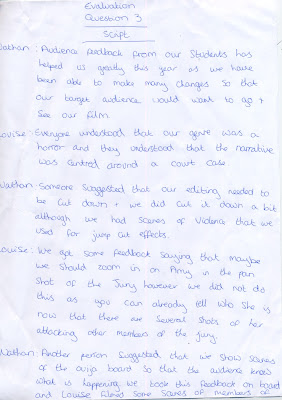 Evaluation
Question 3
Script
Nathan: Audience feedback from our students has
helped us greatly this year as we have
been able to make many changes so that
our target audience would want to go +
see our film.
Louise: Everyone understood that our genre was a
horror and they understood that the narrative
was centred around a court case
Nathan: Someone suggested that our editing needed to
be cut down + we did cut it down a bit
although we had scenes of violence that we
used for jump cut effects.
Louise: We got some feedback saying that maybe
we should zoom in on Amy in the pan
shot of the Jury however we did not do
this as you can already tell who she is
now that there are several shots of her
attacking other members of the jury.
Nathan: Another person suggested that we show scenes
of the ouija board so that the audience knew
what is happening we took this feedback on board
and Louise filmed some scenes of members of